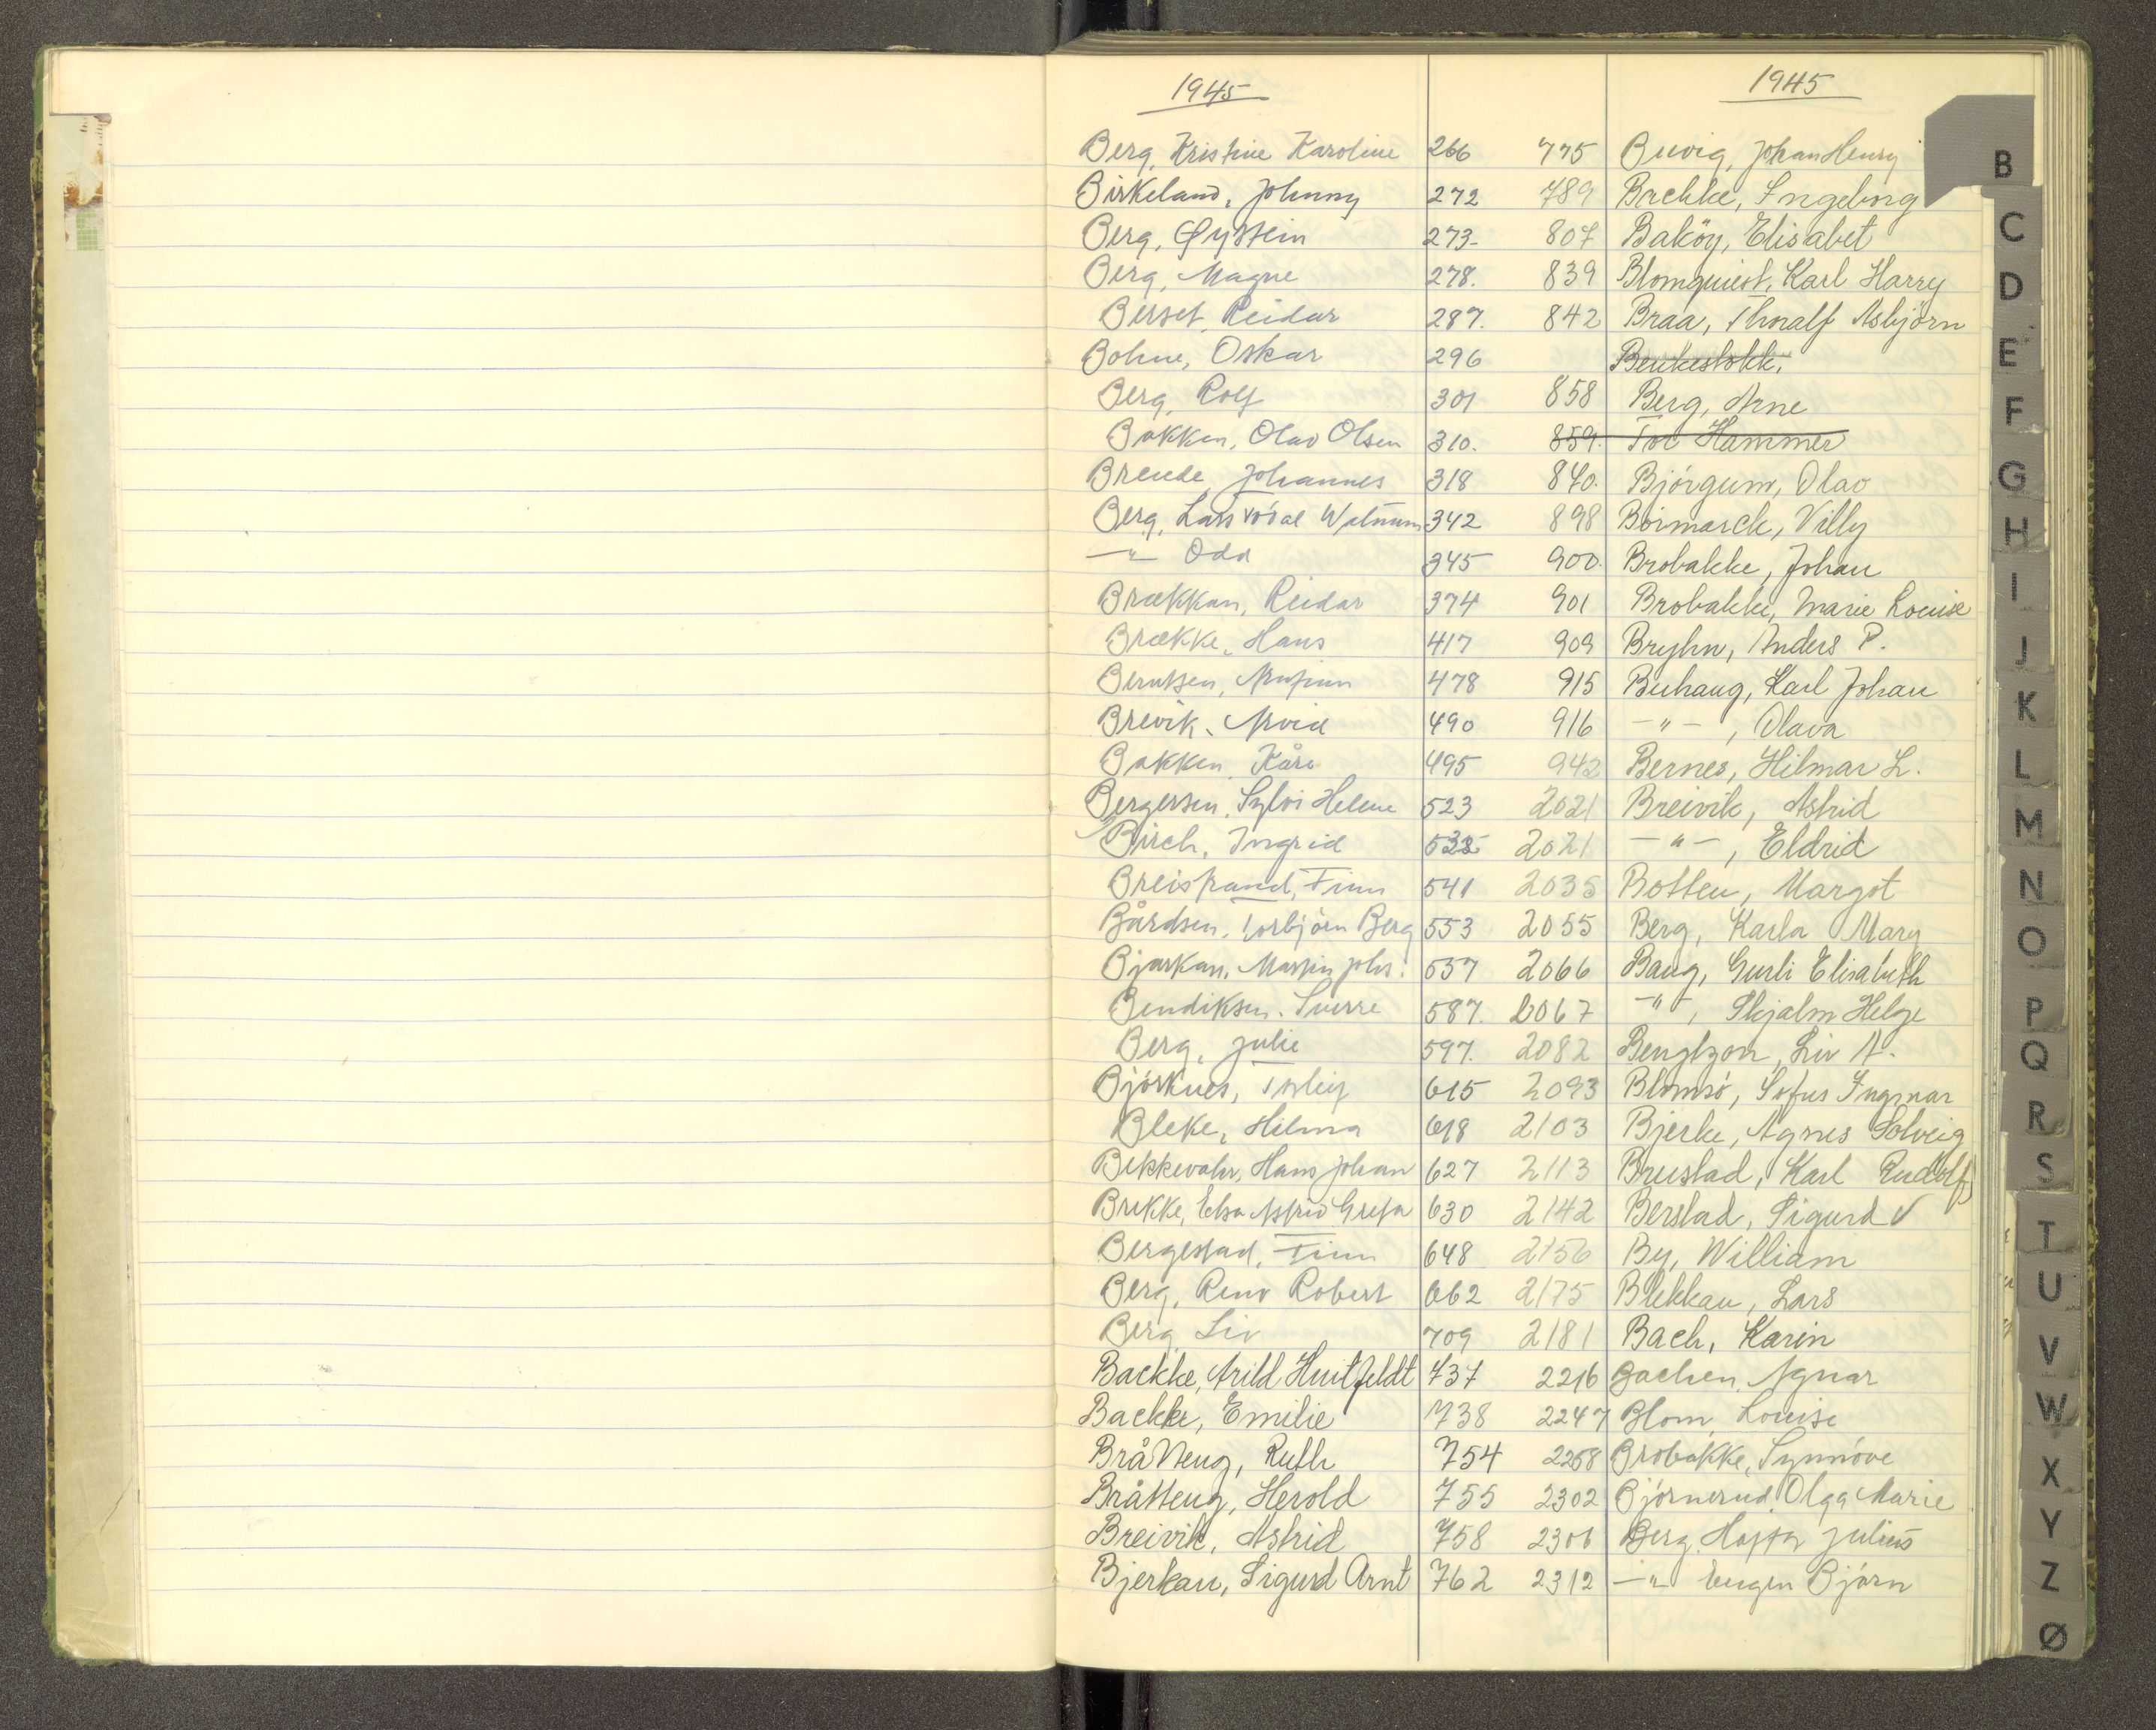 1945 1945
Berg, Kristine Karoline 266 775 Buvig, Johan Henry
Birkeland, Johnny 272 789 Bachke, Ingeborg
Berg, Øystein 273- 807 Baköy, Elisabet
Berg, Magne 278. 839 Blomquist, Karl Harry
Berset, Reidar 287. 842 Braa, Thoralf Asbjörn
Bohne, Oskar 296 Benkestokk,
Berg, Rolf 301 858 Berg, Arne
Bakken, Olav Olsen 310. 859. Tor Hammer
Brende, Johannes 318 870. Björgum, Olav
Berg, Lars 342 898 Boirmarck, Villy
—"— Odd 345 900. Brobakke, Johan
Brækkan, Reidar 374 901 Brobakke, Marie Louise
Brække, Hans 417 909 Bryhn, Anders P.
Berntsen, Arnfinn 478 915 Buhaug, Karl Johan
Brevik, Arvid 490 916 —"—, Olava
Bakken, Kåre 495 942 Bernes, Hilmar L.
Bergersen, Sylvi Helene 523 2021 Breivik, Astrid
Birch, Ingrid 532 2021 —"—, Eldrid
Breistrand, Finn 541 2035 Botten, Margot
Bårdsen, Torbjörn Berg 553 2055 Berg, Karla Mary
Bjerkan, Martin Johs. 557 2066 Baug, Gurli Elisabeth
Bendiksen, Sverre 587. 2067 —"—, Skjalm Helge
Berg, Julie 597. 2082 Bengtzon, Liv A.
Björknes, Torleif 615 2093 Blomsö, Sofus Ingmar
Bleke, Hilma 618 2103 Bjerke, Agnes Solveig
Bekkevahr, Hans Johan 627 2113 Brustad, Karl Rudolf
Brekke, Elsa Astrid Greta 630 2142 Berstad, Sigurd ✓
Bergestad, Finn 648 2156 By, William
Berg, Reno Robert 662 2175 Blekkan, Lars
Berg Liv 709 2181 Bach, Karin
Backke, Arild Huitfeldt 737 2216 Bachen, Agnar
Backke, Emilie 738 2247 Blom, Louise
Bråtteng, Ruth 754 2258 Brobakke, Synnöve
Bråtteng, Herold 755 2302 Björnerud, Olga Marie
Breivik, Astrid 758 2306 Berg, Julius
Bjerkan, Sigurd Arnt 762 2312 —"— Eugen Björn
B
C
D
E
F
G
H
I
J
K
L
M
N
O
P
Q
R
S
T
U
V
W
X
Y
Z
Ø